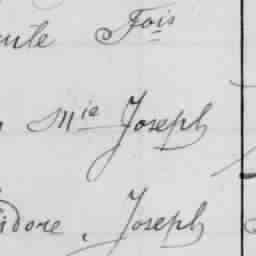 Fois
Mie Joseph
idore, Joseph